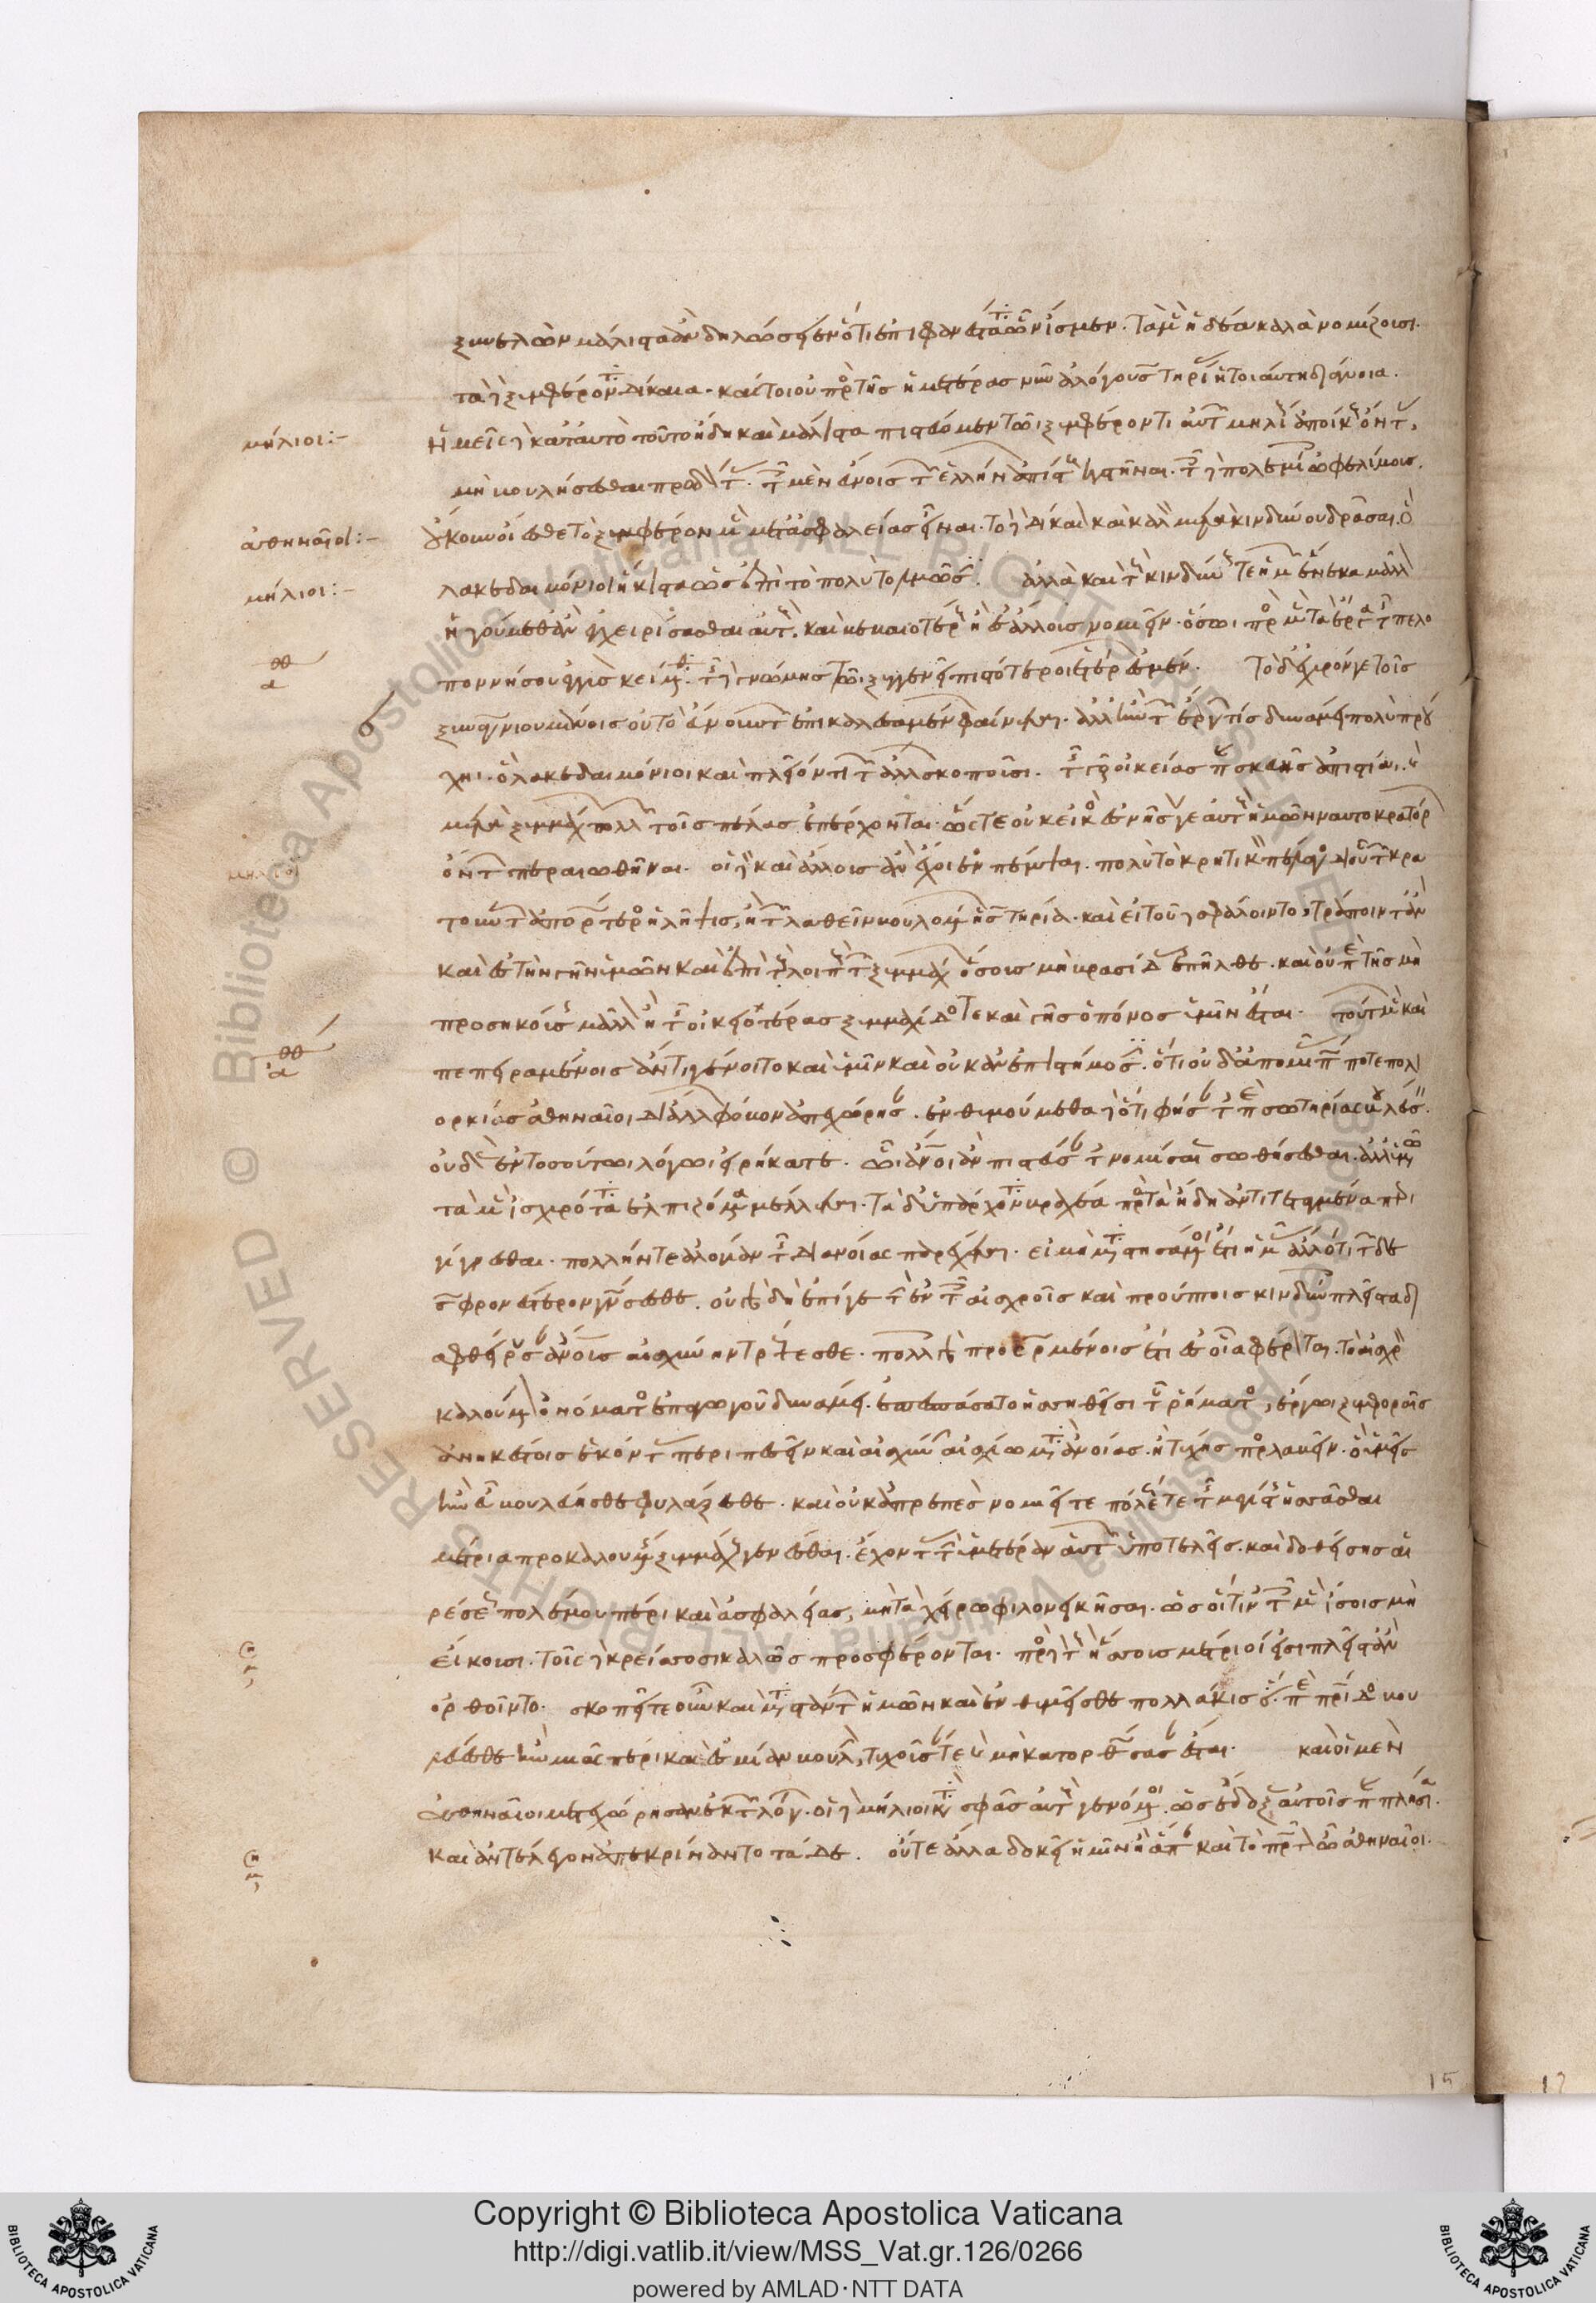 ξυνελὼν μάλιστα ἂν δηλώσειεν ὅτι ἐπιφανέστατα ὧν ἴσμεν. τὰ μὲν ἡδέα καλὰ νομίζουσι.
τὰ δὲ ξυμφέροντα δίκαια. καίτοι οὐ πρὸς τῆς ἡμετέρας νῦν ἀλόγου σωτηρίας ἡ τοιαύτη διάνοια.
μήλιοι:– ἡμεῖς δὲ κατ' αὐτὸ τοῦτο ἤδη καὶ μάλιστα πιστεύομεν τῶι ξυμφέροντι αὐτῶν μηλίους ἀποίκους ὄντας,
μὴ βουλήσεσθαι προδόντας. τοῖς μὲν εὔνοις τῶν ἑλλήνων ἀπίστους καταστῆναι. τοῖς δὲ πολεμίοις ὠφελίμους.
ἀθηναῖοι:– οὔκουν οἴεσθε τὸ ξυμφέρον μὲν μετ' ἀσφαλείας εἶναι. τὸ δὲ δίκαιον καὶ καλὸν μετὰ κινδύνου δρᾶσθαι. ὃ
μήλιοι:– λακεδαιμόνιοι ἥκιστα ὡς ἐπὶ τὸ πολὺ τολμῶσιν. ἀλλὰ καὶ τοὺς κινδύνους τε ἡμῶν ἕνεκα μᾶλλον
ἡγούμεθ' ἂν ἐγχειρίσασθαι αὐτούς. καὶ βεβαιοτέρους ἢ ἐς ἄλλους νομιεῖν. ὅσωι πρὸς μὲν τὰ ἔργα τῆς πελο
αθ ποννήσου ἐγγὺς κείμεθα. τῆς δὲ γνώμης τῶι ξυγγενεῖ πιστότεροι ἑτέρων ἐσμέν. τὸ δ' ἐχυρόν γε τοῖς
ξυναγωνιουμένοις οὐ τὸ εὔνουν τῶν ἐπικαλεσαμένων φαίνεται. ἀλλ' ἢν τῶν ἔργων τις δυνάμει πολὺ πρού
χηι. ὃ λακεδαιμόνιοι καὶ πλέον τι τῶν ἄλλων σκοποῦσι. τῆς γοῦν οἰκείας παρασκευῆς ἀπιστίαι καὶ
μετὰ ξυμμάχων πολλῶν τοῖς πέλας ἐπέρχονται. ὥστε οὐκ εἰκὸς ἐς νῆσόν γε αὐτοὺς ἡμῶν ναυτοκρατόρων
μήλιοι ὄντων περαιωθῆναι. οἱ δὲ καὶ ἄλλους ἂν ἔχοιεν πέμψαι. πολὺ τὸ κρητικὸν πέλαγος δι' οὗ τῶν κρα
τούντων ἀπορώτερος ἡ λῆψις, ἢ τῶν λαθεῖν βουλομένων ἡ σωτηρία. καὶ εἰ τοῦδε σφάλοιντο, τράποιντ' ἂν
καὶ ἐς τὴν γῆν ὑμῶν καὶ ἐπὶ τοὺς λοιποὺς τῶν ξυμμάχων ὅσους μὴ βρασίδας ἐπῆλθε. καὶ οὐ περὶ τῆς μὴ
προσηκούσης μᾶλλον ἢ τῆς οἰκειοτέρας ξυμμαχίδος τε καὶ γῆς ὁ πόνος ὑμῖν ἔσται. τούτων μὲν καὶ
αθ πεπειραμένοις ἄν τι γένοιτο καὶ ὑμῖν καὶ οὐκ ἀνεπιστήμοσιν. ὅτι οὐδ' ἀπὸ μιᾶς πώποτε πολι
ορκίας ἀθηναῖοι δι' ἄλλων φόβον ἀπεχώρησαν. ἐνθυμούμεθα δὲ ὅτι φήσαντες περὶ σωτηρίας βουλεύσειν.
οὐδὲν ἐν τοσούτωι λόγωι εἰρήκατε. ὧι ἄνθρωποι ἂν πιστεύσαντες νομίσειαν σωθήσεσθαι. ἀλλ' ὑμῶν
τὰ μὲν ἰσχυρότατα ἐλπιζόμενα μέλλεται. τὰ δ' ὑπάρχοντα βραχέα πρὸς τὰ ἤδη ἀντιτεταγμένα περι
γίγνεσθαι. πολλήν τε ἀλογίαν τῆς διανοίας παρέχετε. εἰ μὴ μεταστησάμενοι ἔτι ἡμᾶς ἄλλο τι τῶνδε
σωφρονέστερον γνώσεσθε. οὐ γὰρ δὴ ἐπί γε τὴν ἐν τοῖς αἰσχροῖς καὶ προύπτοις κινδύνοις πλεῖστα δι
αφθείρουσαν ἀνθρώπους αἰσχύνην τρέψεσθε. πολλοῖς γὰρ προορωμένοις ἔτι ἐς οἷα φέρονται. τὸ αἰσχρὸν
καλούμενον ὀνόματος ἐπαγωγοῦ δυνάμει. ἐπεσπάσατο ἡσσηθεῖσι τοῦ ῥήματος, ἔργωι ξυμφοραῖς
ἀνηκέστοις ἑκόντας περιπεσεῖν καὶ αἰσχύνην αἰσχίω μετὰ ἀνοίας. ἢ τύχης προσλαβεῖν. ὃ ὑμεῖς
ἢν εὖ βουλεύησθε φυλάξεσθε. καὶ οὐκ ἀπρεπὲς νομιεῖτε πόλεώς τε τῆς μεγίστης ἡσσᾶσθαι
μέτρια προκαλουμένης ξυμμάχους γενέσθαι. ἔχοντας τὴν ὑμετέραν αὐτῶν ὑποτελεῖς. καὶ δοθείσης αἱ
ρέσεως πολέμου πέρι καὶ ἀσφαλείας, μὴ τὰ χείρω φιλονεικῆσαι. ὡς οἵτινες τοῖς μὲν ἴσοις μὴ
εἴκουσι. τοῖς δὲ κρείσσοσι καλῶς προσφέρονται. πρὸς δὲ τοὺς ἥσσους μέτριοί εἰσι πλεῖστ' ἂν
ὀρθοῖντο. σκοπεῖτε οὖν καὶ μεταστάντων ἡμῶν καὶ ἐνθυμεῖσθε πολλάκις ὅτι περὶ πατρίδος βου
λεύεσθε ἢν μιᾶς πέρι καὶ ἐς μίαν βουλήν, τυχοῦσάν τε καὶ μὴ κατορθώσασαν ἔσται. καὶ οἱ μὲν
ἀθηναῖοι μετεχώρησαν ἐκ τῶν λόγων. οἱ δὲ μήλιοι κατὰ σφᾶς αὐτοὺς γενόμενοι. ὡς ἔδοξεν αὐτοῖς παραπλήσια.
καὶ ἀντέλεγον ἀπεκρίναντο τάδε. οὔτε ἄλλα δοκεῖ ἡμῖν ἢ ἅπερ καὶ τὸ πρῶτον ὦ ἀθηναῖοι.
15
Copyright © Biblioteca Apostolica Vaticana
http://digi.vatlib.it/view/MSS_Vat.gr.126/0266
powered by AMLAD·NTT DATA